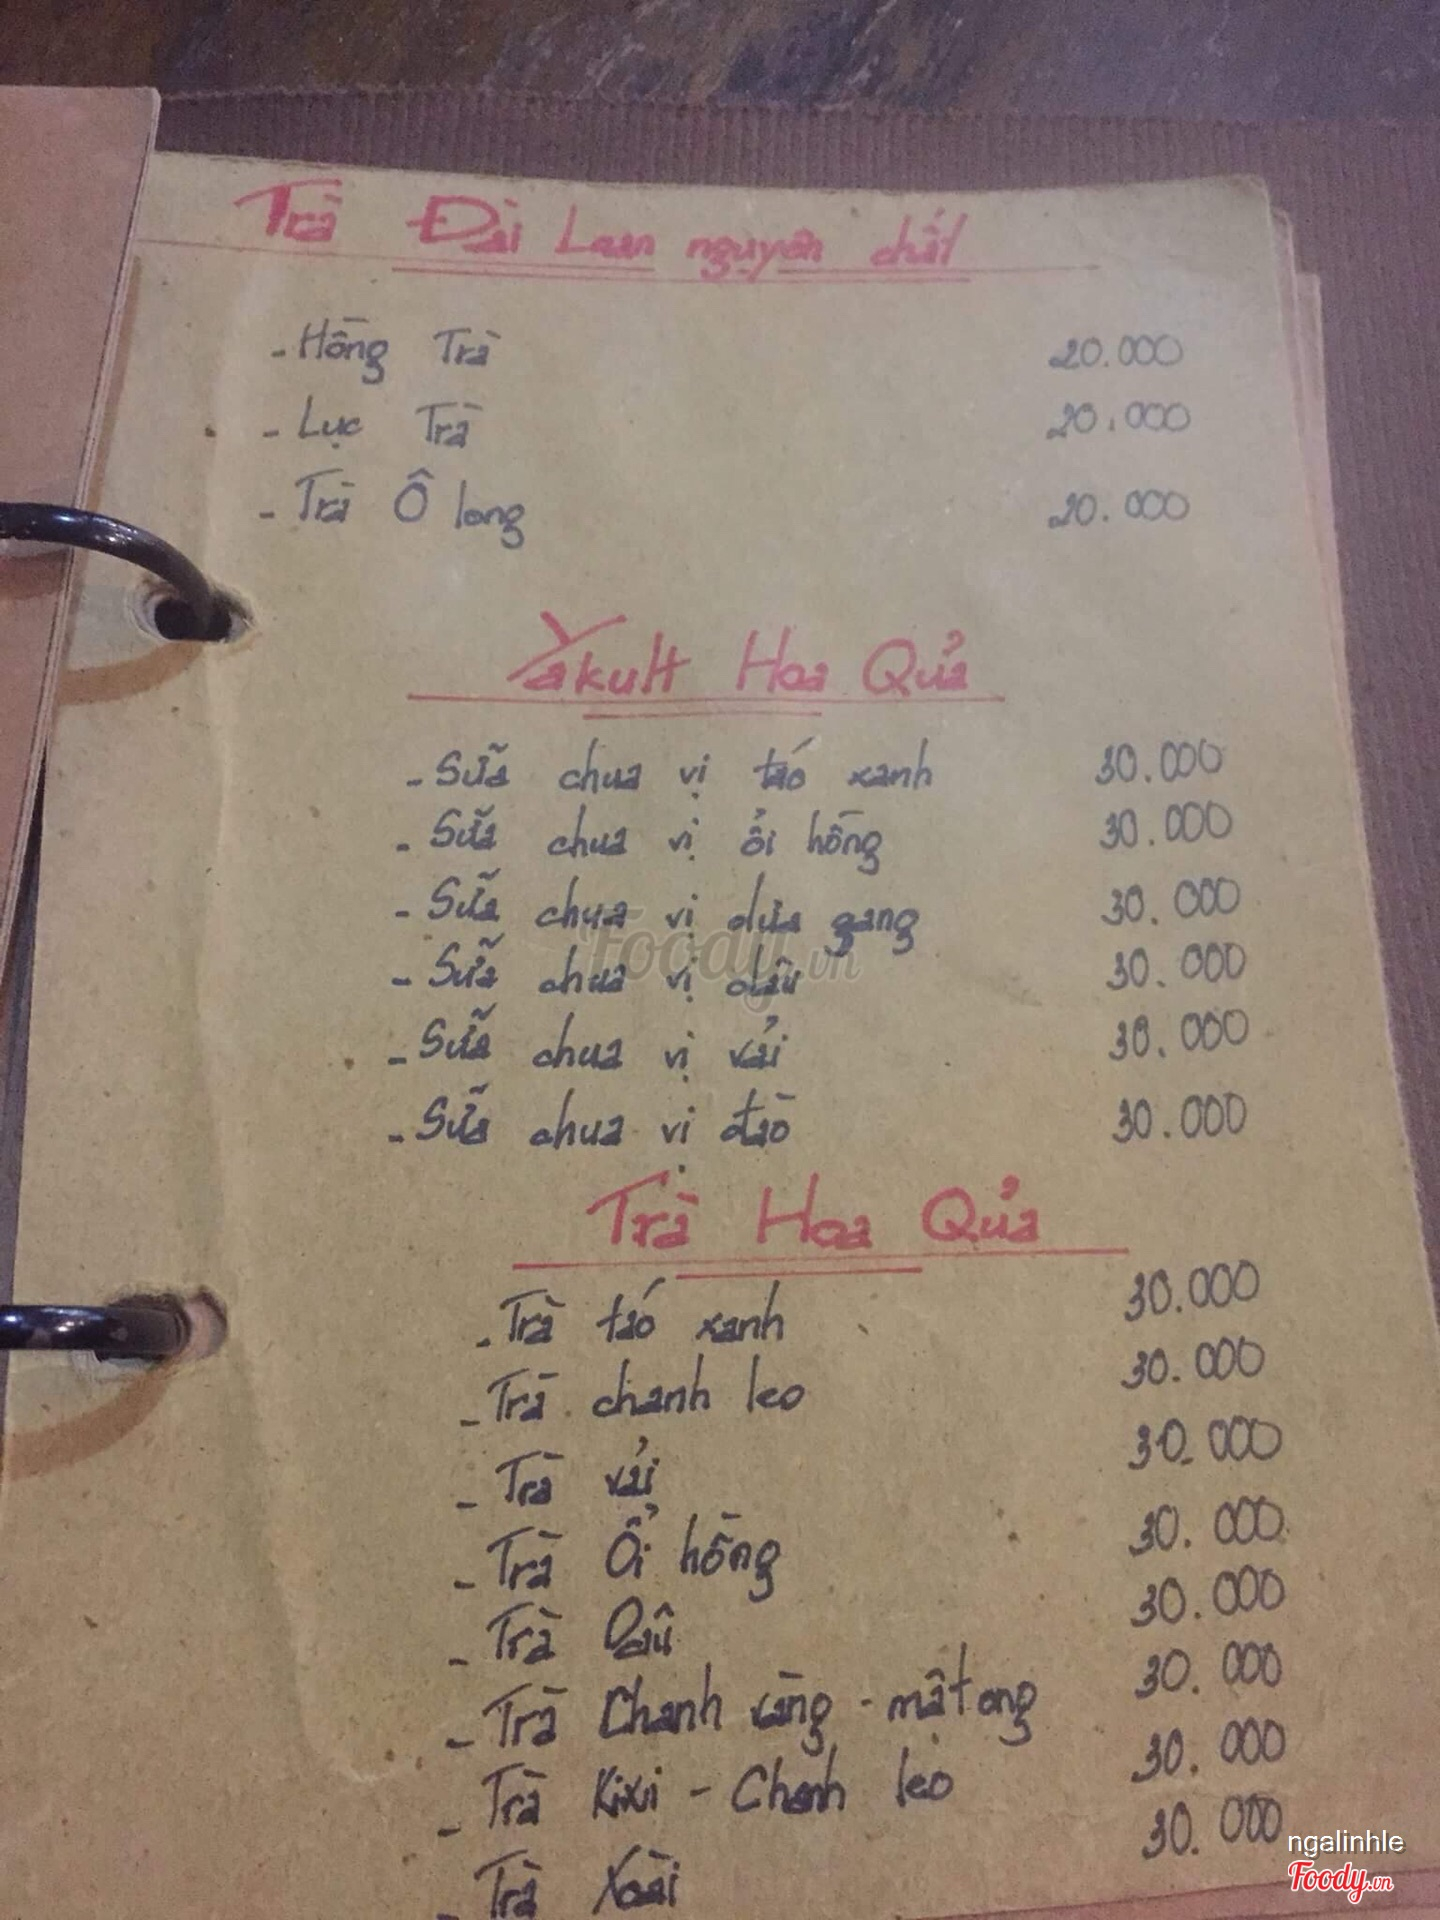 Trà Đài Loan nguyên chất
- Hồng Trà 20.000
- Lục Trà 20.000
- Trà Ô long 20.000
Yakult Hoa Quả
- Sữa chua vị táo xanh 30.000
- Sữa chua vị ổi hồng 30.000
- Sữa chua vị dưa gang 30.000
- Sữa chua vị dâu 30.000
- Sữa chua vị vải 30.000
- Sữa chua vị đào 30.000
Trà Hoa Quả
- Trà táo xanh 30.000
- Trà chanh leo 30.000
- Trà vải 30.000
- Trà Ổi hồng 30.000
- Trà Dâu 30.000
- Trà Chanh vàng - mật ong 30.000
- Trà Kiwi - Chanh leo 30.000
- Trà Xoài 30.000
Foody.vn
ngalinhle
Foody.vn